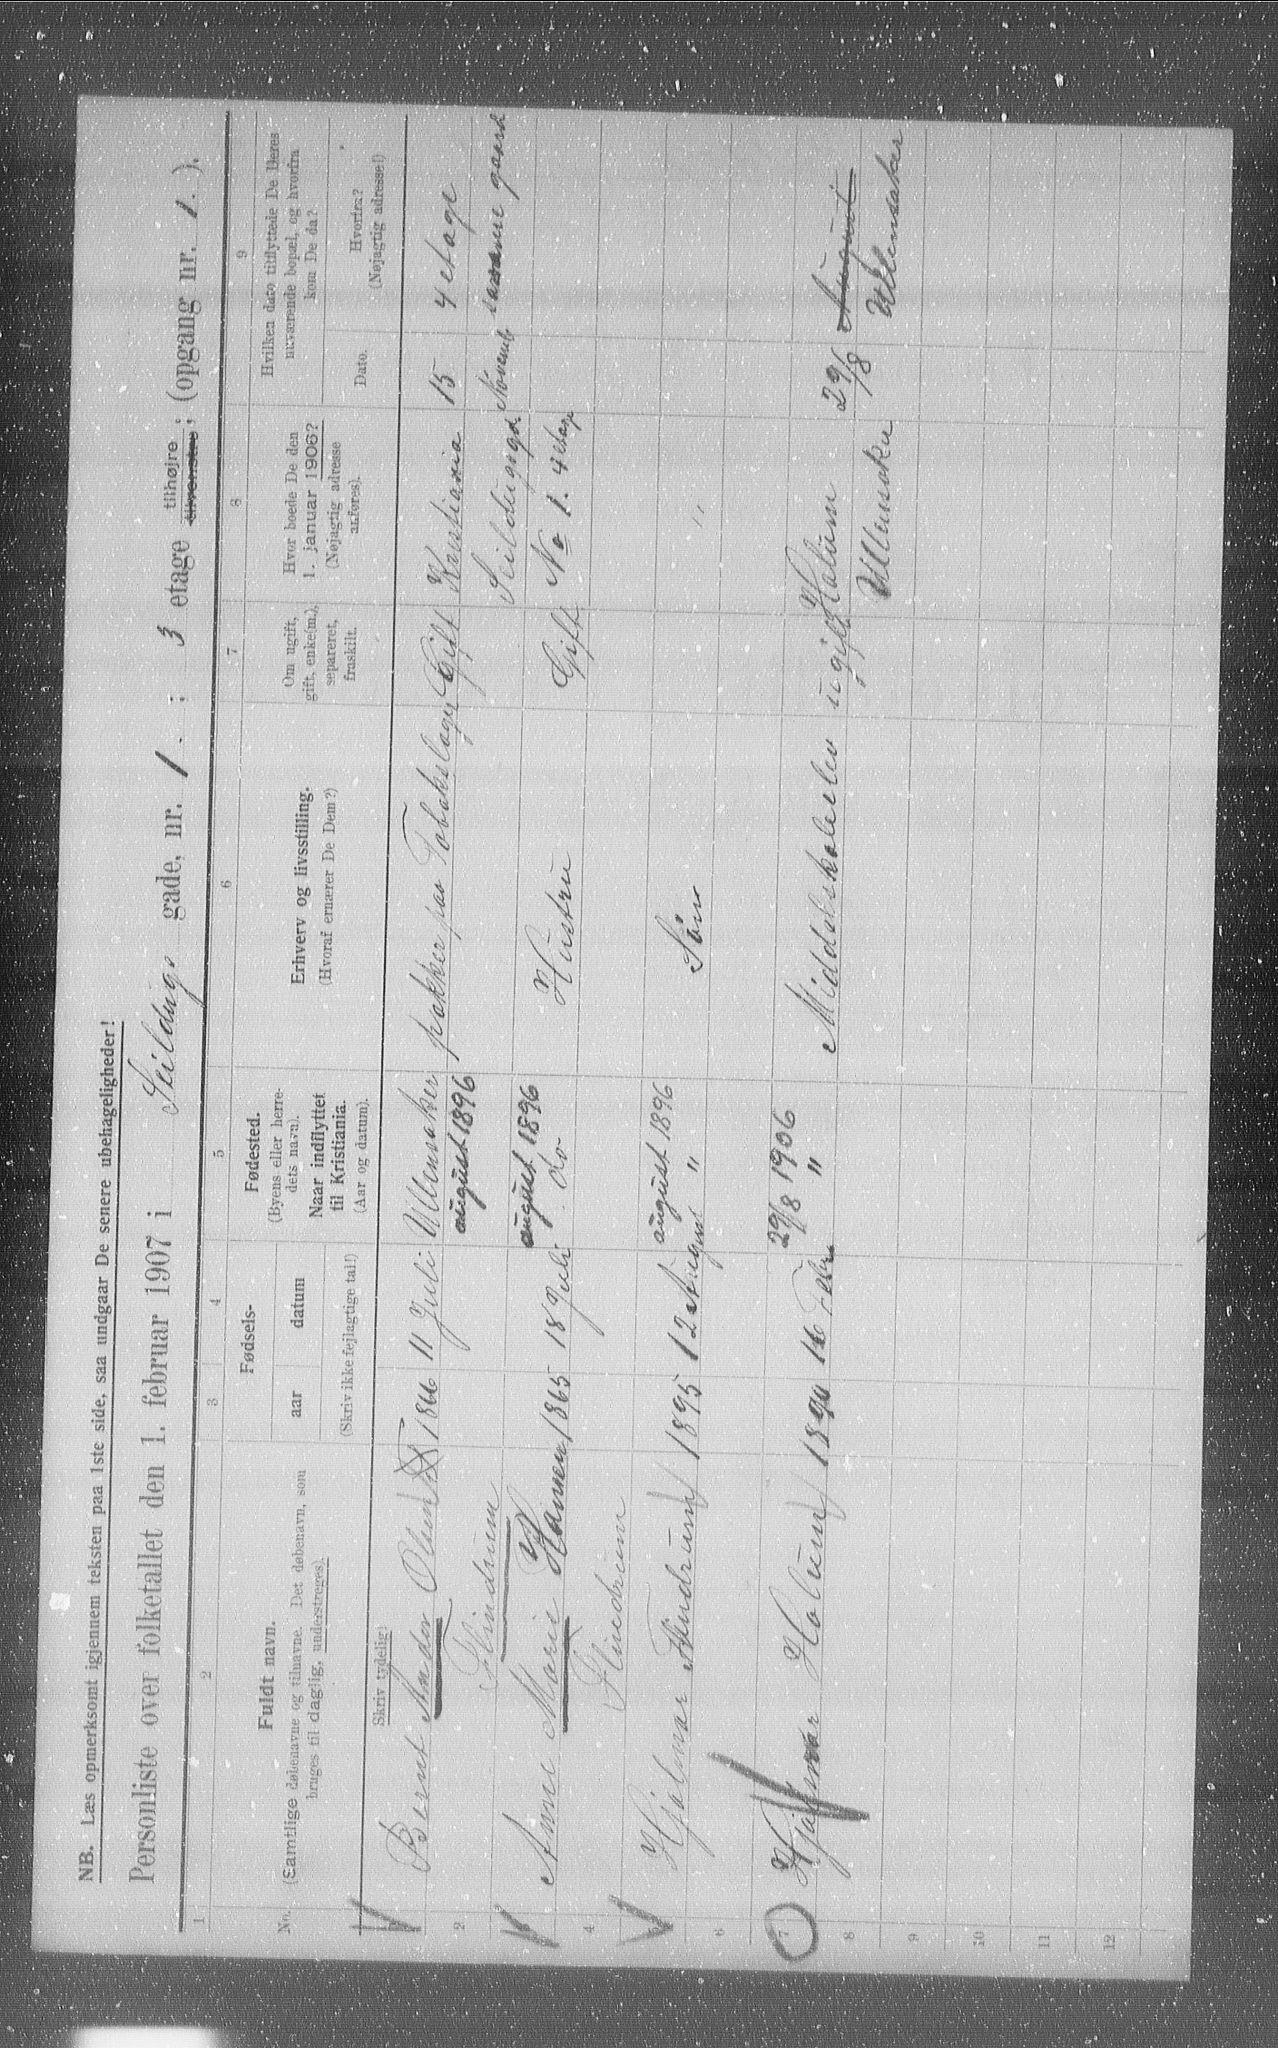 NB. Læs opmerksomt igjennem teksten paa 1ste side, saa undgaar De senere ubehageligheder!
Personliste over folketallet den 1. februar 1907 i Seildugs gade, nr. 1. ; 3 etage tilhøjre tilvenstre; (opgang nr. 1. ).
1 2 3 4 5 6 7 8 9
No.
Fuldt navn.
(Samtlige døbenavne og tilnavne. Det døbenavn, som
bruges til daglig, understreges).
Skriv tydelig!
Fødsels-
aar datum
(Skriv ikke fejlagtige tal!)
Fødested.
(Byens eller herre-
dets navn).
Naar indflyttet
til Kristiania.
(Aar og datum).
Erhverv og livsstilling.
(Hvoraf ernærer De Dem?)
Om ugift,
gift, enke(m.),
separeret,
fraskilt.
Hvor boede De den
1. januar 1906?
(Nøjagtig adresse
anføres).
Hvilken dato tilflyttede De Deres
nuværende bopæl, og hvorfra
kom De da?
Dato.
Hvorfra?
(Nøjagtig adresse!)
Bernt Andor Olsen 1866 11 Juli Ullensaker pakker paa Tobakslager Gift Kristiania 15 4 etage
2 Flindrum august 1896 Seildugsgd. Novemb samme gaard
Anne Marie Hansen 1865 18 Juli august 1896 do Hustru Gift No 1. 4 etage
4 Flindrum
Hjalmar Findrum 1895 12 August august 1896 " Søn "
6
7 Hjalmar Holum 1890 16 Febr 29/8 1906 " Middelskoleelev ugift Holum 29/8 August
8 Ullensaker Ullensaker
9
10
11
12